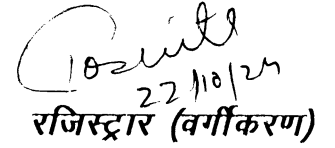 22/10/24
रजिस्ट्रार (वर्गीकरण)